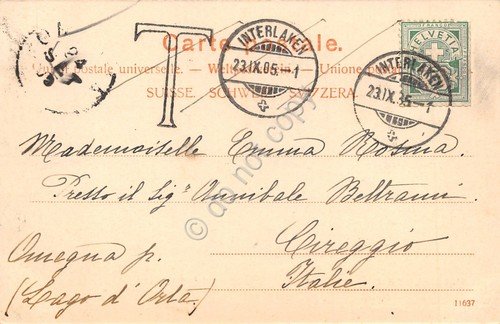 Carte postale.
Union postale universelle. — Weltpostverein. — Unione postale
SUISSE. SCHWEIZ. SVIZZERA.
T
INTERLAKEN
23.IX.05.-1
INTERLAKEN
23.IX.05.-1
HELVETIA
24
SET
05
Mademoiselle Emma Rosma.
Presso il Sig.r Annibale Beltrami
Omegna p. Cireggio
(Lago d'Orta) Italie.
do not copy
11637